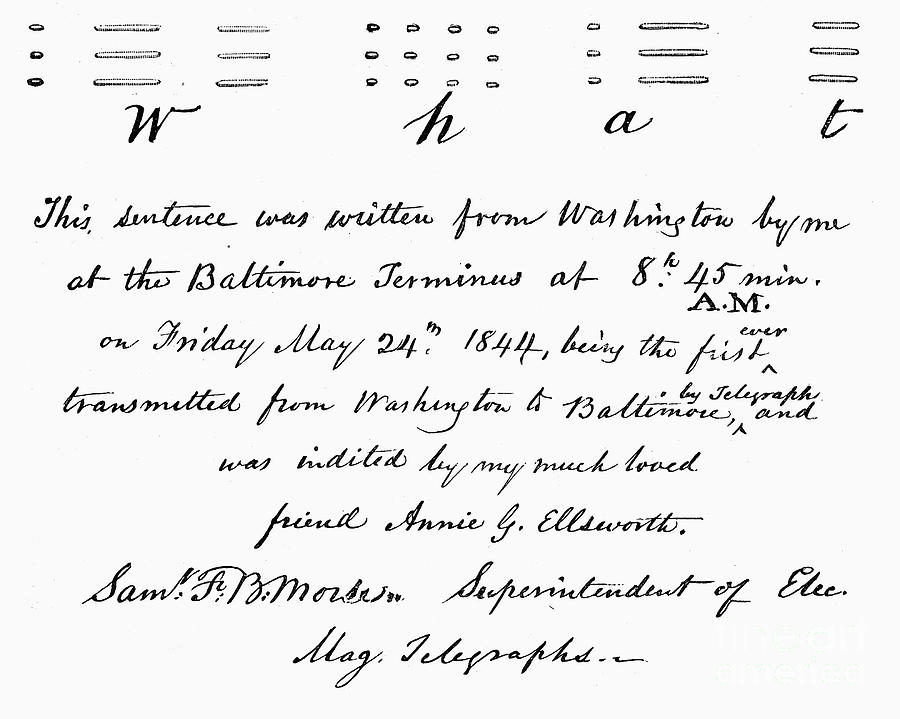 W h a t
This sentence was written from Washington by me
at the Baltimore Terminus at 8.h 45 min.
A.M.
on Friday May 24th. 1844, being the first ever
transmitted from Washington to Baltimore, by Telegraph and
was indited by my much loved
friend Annie G. Ellsworth.
Saml. F. B. Morse. Superintendent of Elec.
Mag. Telegraphs.
fine art
america